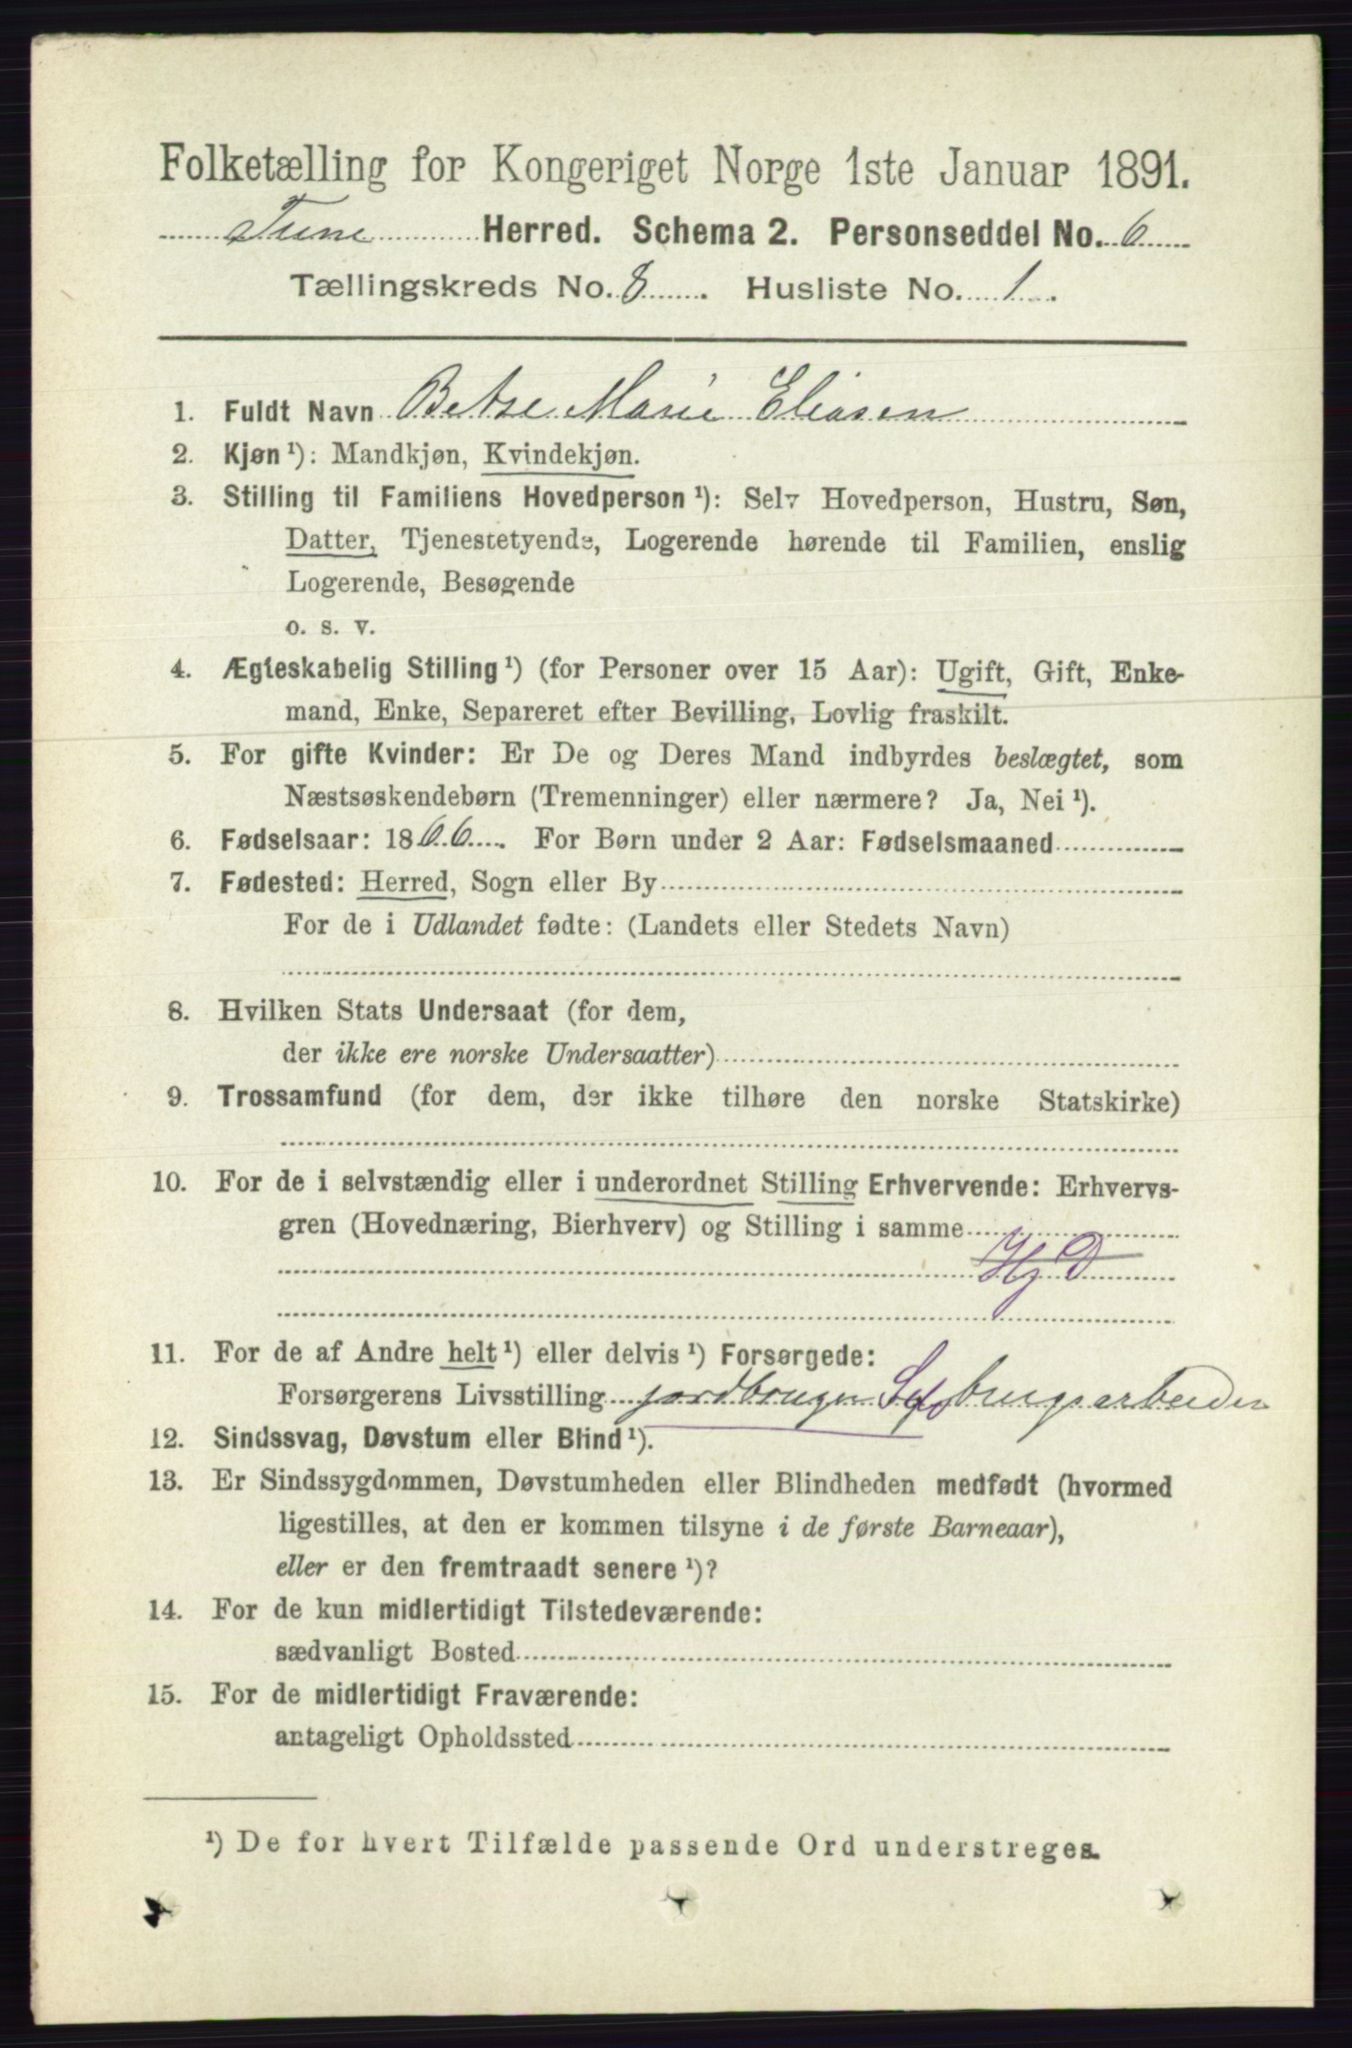 Folketælling for Kongeriget Norge 1ste Januar 1891.
Tune Herred. Schema 2. Personseddel No. 6
Tællingskreds No. 8. Husliste No. 1.
1. Fuldt Navn Betse Marie Eliasen
2. Kjøn ¹): Mandkjøn, Kvindekjøn.
3. Stilling til Familiens Hovedperson ¹): Selv Hovedperson, Hustru, Søn,
Datter, Tjenestetyende, Logerende hørende til Familien, enslig
Logerende, Besøgende
o. s. v.
4. Ægteskabelig Stilling ¹) (for Personer over 15 Aar): Ugift, Gift, Enke-
mand, Enke, Separeret efter Bevilling, Lovlig fraskilt.
5. For gifte Kvinder: Er De og Deres Mand indbyrdes beslægtet, som
Næstsøskendebørn (Tremenninger) eller nærmere? Ja, Nei ¹).
6. Fødselsaar: 1866. For Børn under 2 Aar: Fødselsmaaned
7. Fødested: Herred, Sogn eller By
For de i Udlandet fødte: (Landets eller Stedets Navn)
8. Hvilken Stats Undersaat (for dem,
der ikke ere norske Undersaatter)
9. Trossamfund (for dem, der ikke tilhøre den norske Statskirke)
10. For de i selvstændig eller i underordnet Stilling Erhvervende: Erhvervs-
gren (Hovednæring, Bierhverv) og Stilling i samme
Hj D
11. For de af Andre helt ¹) eller delvis ¹) Forsørgede:
Forsørgerens Livsstilling jordbruger brugsarbeider
12. Sindssvag, Døvstum eller Blind ¹).
13. Er Sindssygdommen, Døvstumheden eller Blindheden medfødt (hvormed
ligestilles, at den er kommen tilsyne i de første Barneaar),
eller er den fremtraadt senere ¹)?
14. For de kun midlertidigt Tilstedeværende:
sædvanligt Bosted
15. For de midlertidigt Fraværende:
antageligt Opholdssted
¹) De for hvert Tilfælde passende Ord understreges.